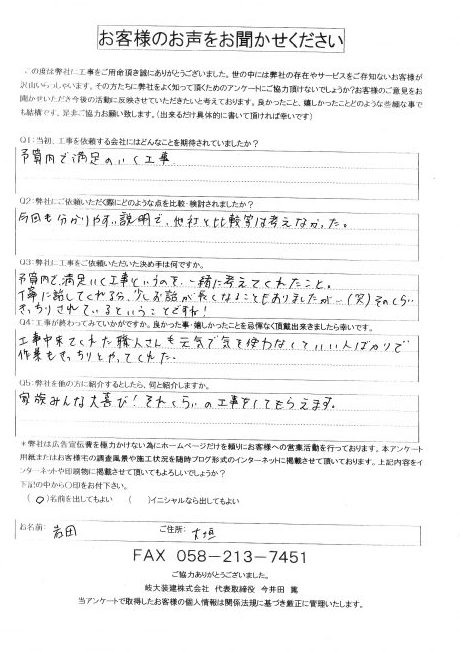 お客様のお声をお聞かせください
この度は弊社に工事をご用命頂き誠にありがとうございました。世の中には弊社の存在やサービスをご存知ないお客様が
沢山いらっしゃいます。その方たちに弊社をよく知って頂くためのアンケートにご協力頂けないでしょうか?お客様のご意見をお
聞かせいただき今後の活動に反映させていただきたいと考えております。良かったこと、嬉しかったことどのような些細な事で
も結構です。是非ご協力お願い致します。(出来るだけ具体的に書いて頂ければ幸いです)
Q1:当初、工事を依頼する会社にはどんなことを期待されていましたか?
予算内で満足のいく工事
Q2:弊社にご依頼いただく際にどのような点を比較・検討されましたか?
今回も分かりやすい説明で、他社と比較等は考えなかった。
Q3:弊社に工事をご依頼いただいた決め手は何ですか。
予算内で、満足いく工事というのを、一緒に考えてくれたこと。
丁寧に話してくれる分、少しお話が長くなることもありましたが…(笑)そのくらい
きっちりされているということですね!
Q4:工事が終わってみていかがですか。良かった事・嬉しかったことを忌憚なく頂戴出来きましたら幸いです。
工事中来てくれた職人さんも元気で気を使わなくていい人ばかりで
作業もきっちりとやってくれた。
Q5:弊社を他の方に紹介するとしたら、何と紹介しますか。
家族みんな大喜び!それくらいの工事をしてもらえます。
*弊社は広告宣伝費を極力かけない為にホームページだけを頼りにお客様への営業活動を行っております。本アンケート
用紙またはお客様宅の調査風景や施工状況を随時ブログ形式のインターネットに掲載させて頂いております。上記内容をイ
ンターネットや印刷物に掲載させて頂いてもよろしいでしょうか?
下記の中から〇印をお付下さい。
(〇)名前を出してもよい ( )イニシャルなら出してもよい
お名前: 岩田 ご住所: 大垣
FAX 058-213-7451
ご協力ありがとうございました。
岐大装建株式会社 代表取締役 今井田 篤
当アンケートで取得したお客様の個人情報は関係法規に基づき厳正に管理いたします。